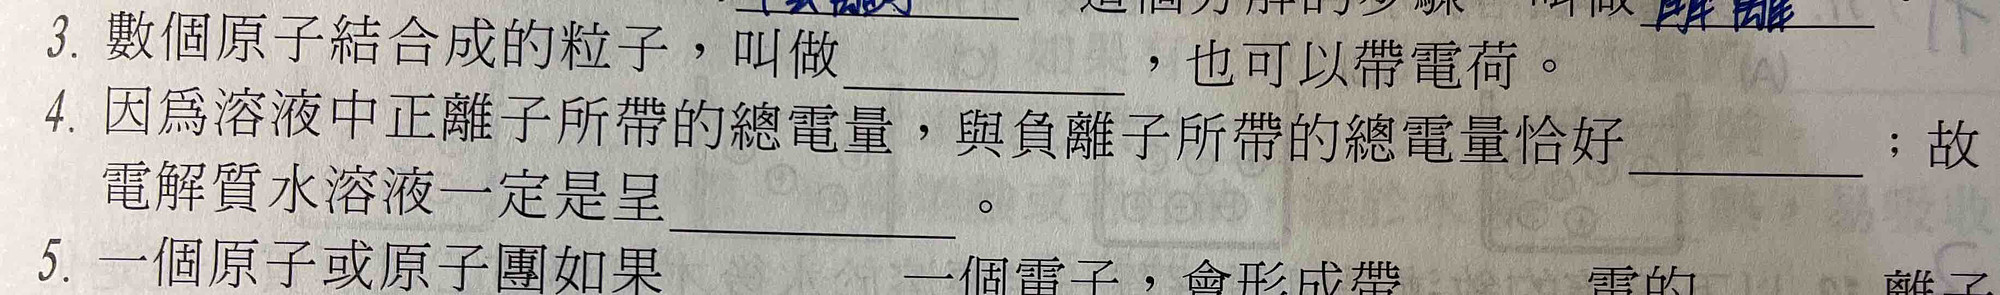 解離。
3. 數個原子結合成的粒子，叫做＿＿＿＿，也可以帶電荷。
4. 因為溶液中正離子所帶的總電量，與負離子所帶的總電量恰好＿＿＿＿；故
電解質水溶液一定是呈＿＿＿＿。
5. 一個原子或原子團如果＿＿＿＿一個電子，會形成帶＿＿＿＿電的＿＿＿＿離子